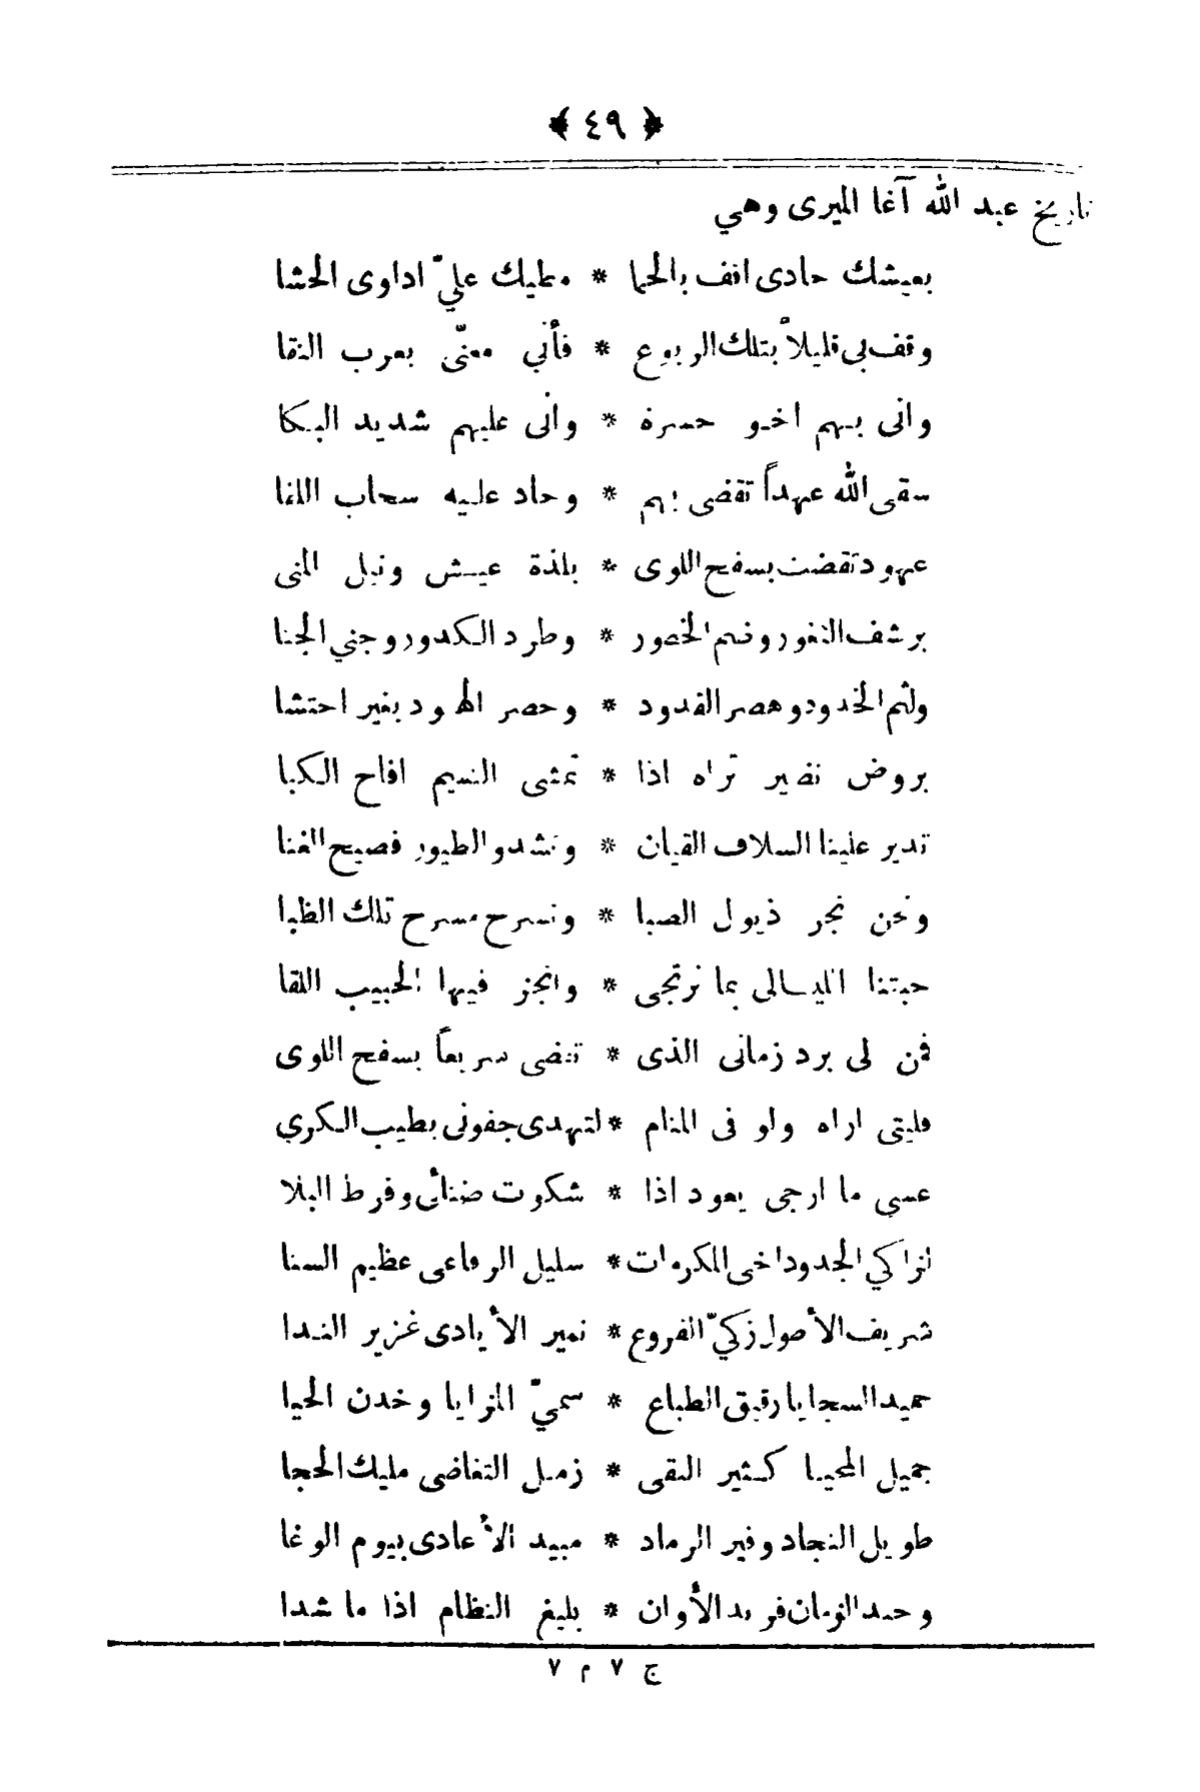 ﴿ ٤٩ ﴾
تاريخ عبد الله آغا الميرى وهي
بعيشك حادى اقف بالحما * مطيك عليّ اداوى الحشا
وقف بى قليلاً بتلك الربوع * فأني معنّى بعرب النقا
وانى بهم اخو حسرة * وانى عليهم شديد البكا
سقى الله عهداً تقضى بهم * وجاد عليه سحاب اللقا
عهود تقضت بسفح اللوى * بلذة عيش ونيل المنى
برشف الثغور وضم الخصور * وطرد الكدور وجني الجنا
ولثم الخدود وهصر القدود * وحصر النهود بغير احتشا
بروض نضير تراه اذا * تمشى النسيم افاح الكبا
تدير علينا السلاف القيان * وتشدو الطيور فصيح الغنا
ونحن نجر ذيول الصبا * ونسرح مسرح تلك الظبا
حبتنا الليالى بما نرتجى * وانجز فيها الحبيب اللقا
فمن لى برد زمانى الذى * تقضى سريعاً بسفح اللوى
فليتى اراه ولو فى المنام * لتهدى جفونى بطيب الكري
عسى ما ارجى يعود اذا * شكوت ضنائى وفرط البلا
لزاكي الجدود اخى المكرمات * سليل الرفاعى عظيم السنا
شريف الأصول زكيّ الفروع * نمير الأيادى غزير الندا
حميد السجايا رقيق الطباع * سميّ المزايا وخدن الحيا
جميل المحيا كثير التقى * زميل التغاضى مليك الحجا
طويل النجاد وفير الرماد * مبيد الأعادى بيوم الوغا
وحيد الزمان فريد الأوان * بليغ النظام اذا ما شدا
ج ٧ م ٧